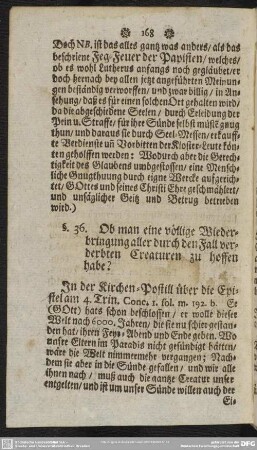 168
Doch NB. ist das alles gantz was anders/ als das
beschriene Feg-Feuer der Papisten/ welches/
ob es wohl Lutherus anfangs noch geglaubet/ er
doch hernach bey allen jetzt angeführten Meinun-
gen beständig verworffen/ und zwar billig/ in An-
sehung/ daß es für einen solchen Ort gehalten wird/
da die abgeschiedene Seelen/ durch Erleidung der
Pein u. Straffe/ für ihre Sünde selbst müste gnug
thun/ und daraus sie durch Seel-Messen/ erkauff-
te Verdienste uñ Vorbitten der Kloster-Leute kön-
ten geholffen werden: Wodurch aber die Gerech-
tigkeit des Glaubens umbgestossen/ eine Mensch-
liche Gnugthuung durch eigne Wercke aufgerich-
tet/ GOttes und seines Christi Ehre geschmählert/
und unsäglicher Geitz und Betrug betrieben
wird.)
§. 36. Ob man eine völlige Wieder-
bringung aller durch den Fall ver-
derbten Creaturen zu hoffen
habe?
In der Kirchen-Postill über die Epi-
stel am 4. Trin. Conc. 1. fol. m. 192. b. Er
(GOtt) hats schon beschlossen/ er wolle dieser
Welt nach 6000. Jahren/ die sie nu schier gestan-
den hat/ ihren Feyr-Abend und Ende geben. Wo
unser Eltern im Paradis nicht gesündiget hätten/
wäre die Welt nimmermehr vergangen; Nach-
dem sie aber in die Sünde gefallen/ und wir alle
ihnen nach/ muß auch die gantze Creatur unser
entgelten/ und ist um unser Sünde willen auch der
Ei-